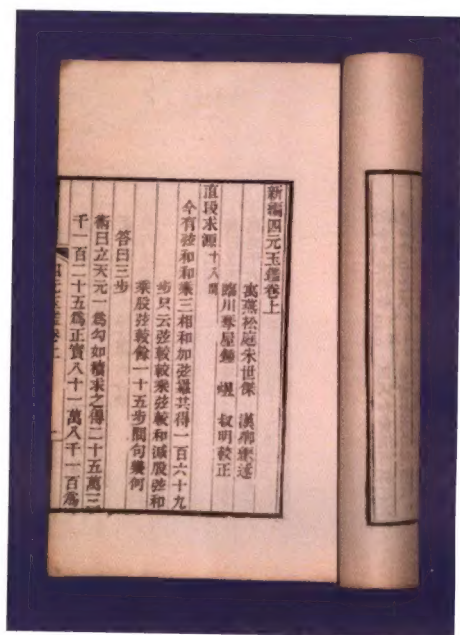 新編四元玉鑑卷上
寓燕松庭朱世傑 漢卿編述
臨川 屋 叔明較正
直段求源十八問
今有弦和和乘三相和加弦 共得一百六十九
步只云弦較較乘弦較和減股弦和
乘股弦較餘一十五步問句幾何
答曰三步
術曰立天元一為勾如積求之得二十五萬三
千一百二十五為正實八十一萬八千一百為
四元玉鑑卷上